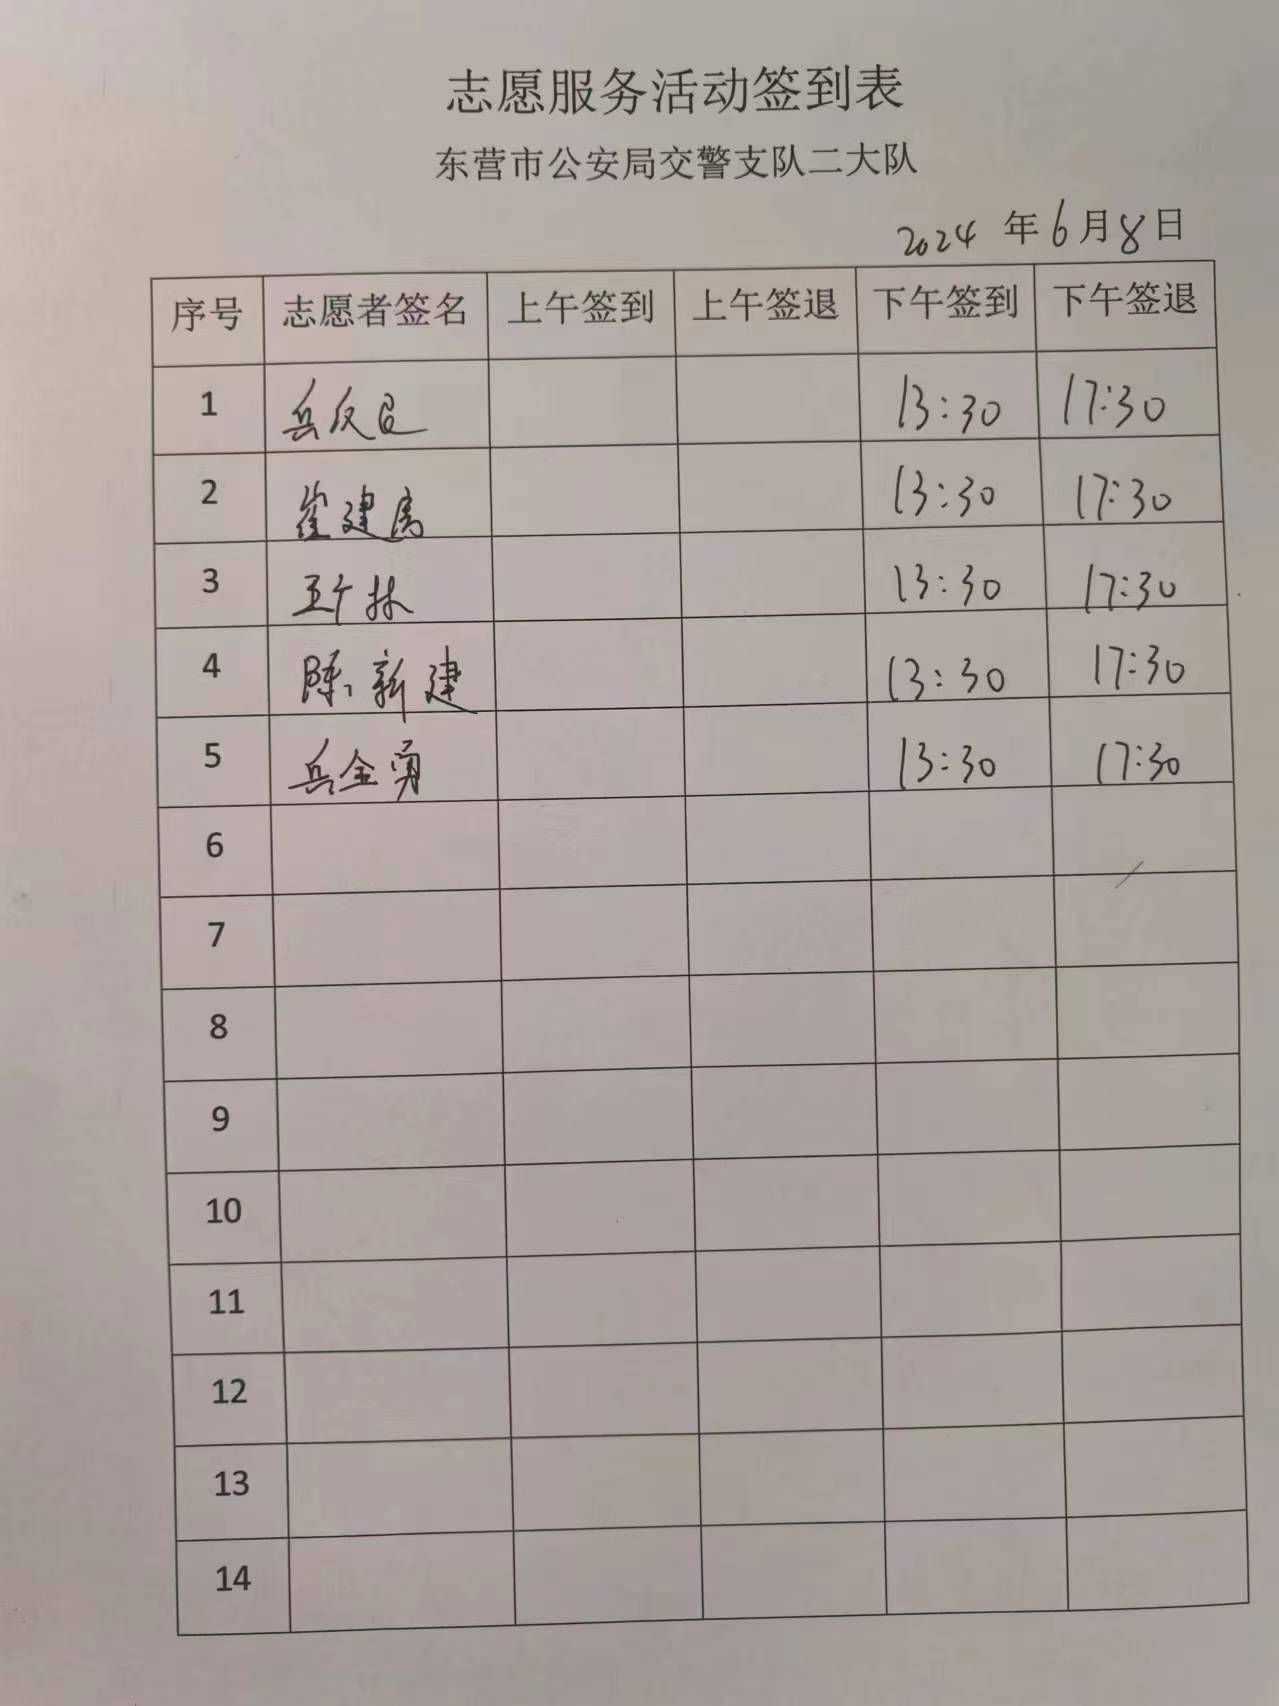 志愿服务活动签到表
东营市公安局交警支队二大队
2024 年 6 月 8 日
序号 志愿者签名 上午签到 上午签退 下午签到 下午签退
1 13:30 17:30
2 崔建 13:30 17:30
3 王 林 13:30 17:30
4 陈新建 13:30 17:30
5 兵全勇 13:30 17:30
6
7
8
9
10
11
12
13
14